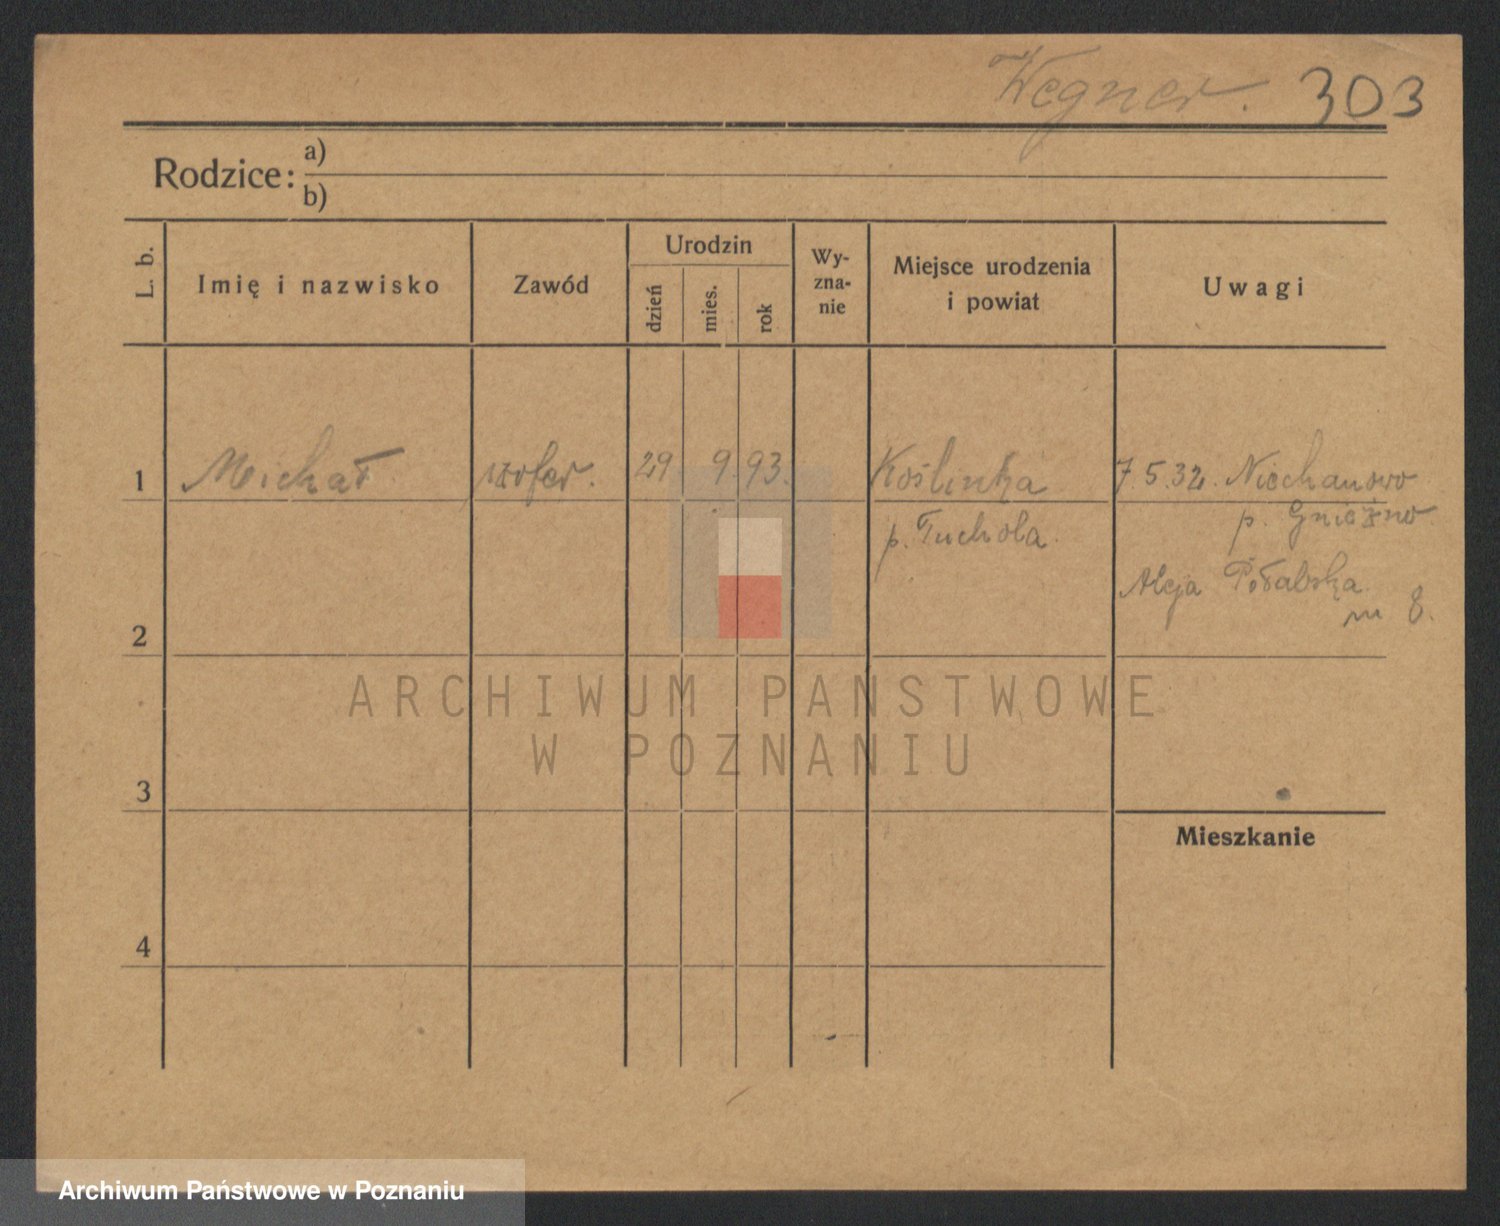 Wegner. 303
Rodzice: a)
b)
L. b.
Imię i nazwisko
Zawód
Urodzin
dzień
mies.
rok
Wy-
zna-
nie
Miejsce urodzenia
i powiat
Uwagi
1 Michał szofer. 29 9 93. Koślinka 7.5.32. Niechanowo
p. Tuchola. p. Gniezno
Aleja Połabska
m 8.
2
3
4
Mieszkanie
ARCHIWUM PANSTWOWE
W POZNANIU
Archiwum Państwowe w Poznaniu